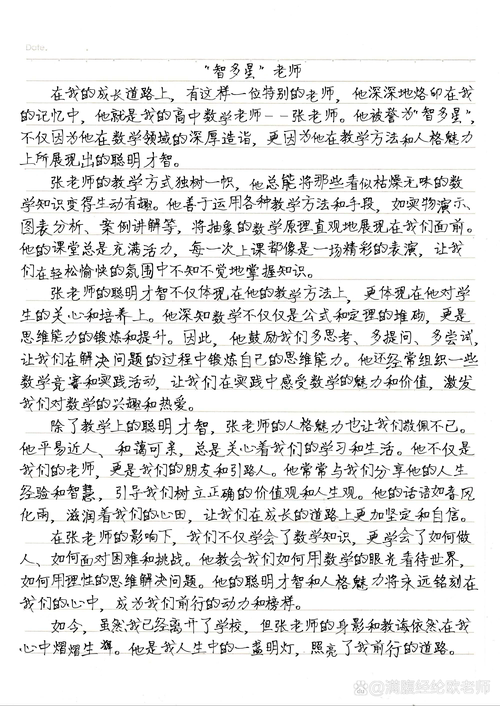 Date.
“智多星”老师
在我的成长道路上，有这样一位特别的老师，他深深地烙印在我
的记忆中，他就是我的高中数学老师--张老师。他被誉为“智多星”，
不仅因为他在数学领域的深厚造诣，更因为他在教学方法和人格魅力
上所展现出的聪明才智。
张老师的教学方式独树一帜，他总能将那些看似枯燥无味的数
学知识变得生动有趣。他善于运用各种教学方法和手段，如实物演示、
图表分析、案例讲解等，将抽象的数学原理直观地展现在我们面前。
他的课堂总是充满活力，每一次上课都像是一场精彩的表演，让我
们在轻松愉快的氛围中不知不觉地掌握知识。
张老师的聪明才智不仅体现在他的教学方法上，更体现在他对学
生的关心和培养上。他深知数学不仅仅是公式和定理的堆砌，更是
思维能力的锻炼和提升。因此，他鼓励我们多思考、多提问、多尝试，
让我们在解决问题的过程中锻炼自己的思维能力。他还经常组织一些
数学竞赛和实践活动，让我们在实践中感受数学的魅力和价值，激发
我们对数学的兴趣和热爱。
除了教学上的聪明才智，张老师的人格魅力也让我们敬佩不已。
他平易近人、和蔼可亲，总是关心着我们的学习和生活。他不仅是
我们的老师，更是我们的朋友和引路人。他常常与我们分享他的人生
经验和智慧，引导我们树立正确的价值观和人生观。他的话语如春风
化雨，滋润着我们的心田，让我们在成长的道路上更加坚定和自信。
在张老师的影响下，我们不仅学会了数学知识，更学会了如何做
人、如何面对困难和挑战。他教会我们如何用数学的眼光看待世界，
如何用理性的思维解决问题。他的聪明才智和人格魅力将永远铭刻在
我们的心中，成为我们前行的动力和榜样。
如今，虽然我已经离开了学校，但张老师的身影和教诲依然在我
心中熠熠生辉。他是我人生中的一盏明灯，照亮了我前行的道路。
@满腹经纶歌老师